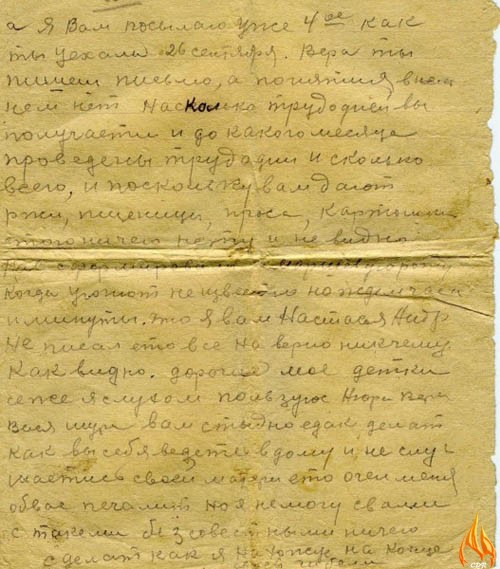 а я Вам посылаю уже 4ое как
ты уехала 26 сентября. Вера ты
пишеш письмо, а понятия в нем
нем нет насколько трудодней вы
получаети и до какого месяца
проведены трудадни и сколько
всего, и поскольку вам дают
ржи, пшеницы, проса, картошки
етого ничего нету и не видно
как
когда угонют не известно но ждем часы
и минуты. то я вам Настася Андр
не писал ето все на верно никчему
как видно. дорогие мое детки
сеже я слухом пользуюс Нюра Вера
Вася Шура вам стыдно едак делат
как вы себя ведети в дому и не слу
ухаетис своей матери ето очен меня
обвас печалит но я немогу с вами
с такеми безсовестными ничего
сделат как я нахожус на конце
гибели
CDR